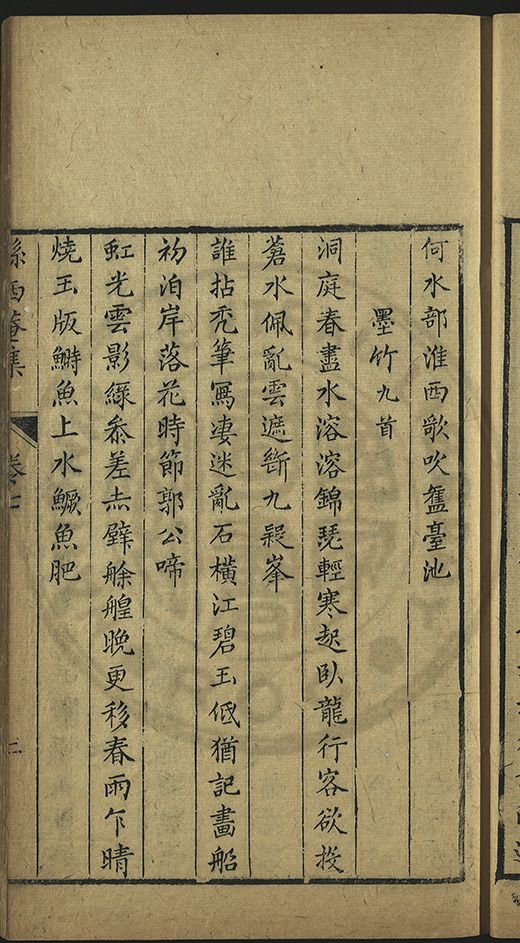 何水部淮西歌吹舊臺池
墨竹九首
洞庭春盡水溶溶錦瑟輕寒起臥龍行客欲投
蒼水佩亂雲遮斷九疑峯
誰拈禿筆寫凄迷亂石橫江碧玉低猶記畫船
初泊岸落花時節郭公啼
虹光雲影綠參差赤壁艅艎晚更移春雨乍晴
燒玉版鰣魚上水鱖魚肥
西菴集
卷七
二